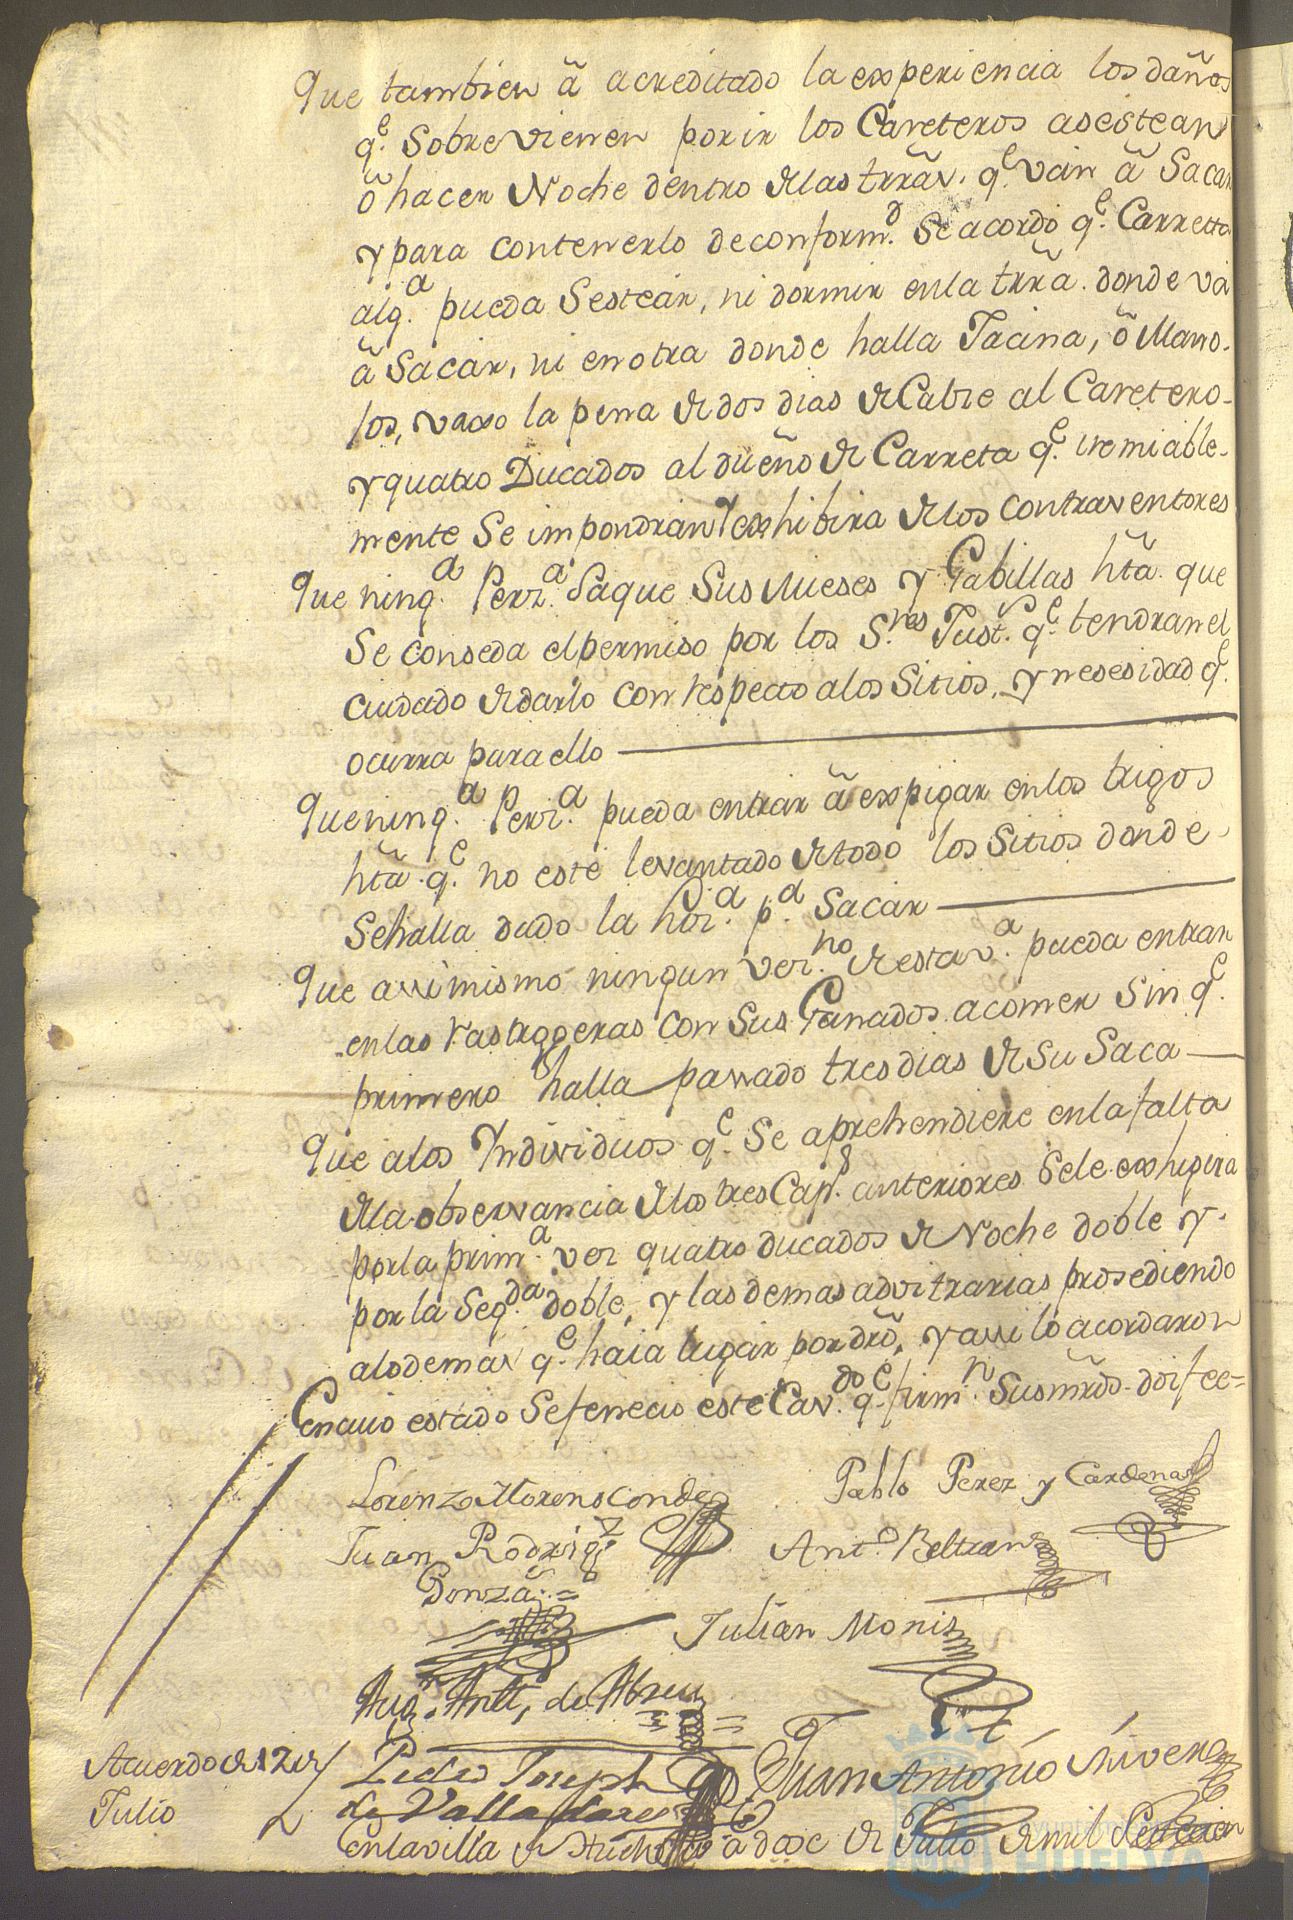 Que tambien ã acreditado la experiencia los daños
q.e Sobrevienen por ir los Careteros a sestear
õ hacer Noche dentro de las trrãs. q.e ván ã Sacar
y para contenerlo de conform.d Se acordó q.e Carretta
alg.a pueda Sestear, ni dormir en la trrã. donde vá
ã Sacar, ni en otra donde halla Jacina, õ Mano-
los, vaxo la pena de dos dias de Cabze al Caretero-
y quatro Ducados al dueño de Carreta q.e iremiable-
mente Se impondran y exhibira de los contraventores
Que ning.a Perz.a Saque Sus Mieses y Gabillas htã. que
Se conseda el permiso por los S.res Just.s q.e tendran el
cuidado de darlo con respecto a los Sitios, y nesesidad q.e
ocurra para ello
Que ning.a Perz.a pueda entrar ã expigar en los trigos
htã. q.e no esté levantado de todo los Sitios donde
Se halla dado la hor.a p.a Sacar
Que assimismo ningun vez.no de esta v.a pueda entrar
en las rastrogeras con Sus Ganados a comer Sin q.e
primero halla passado tres dias de Su Saca
Que a los Yndividuos q.e Se aprehendiere en la falta
de la observancia de los tres Cap.s anteriores Se le exhigira
por la prim.a vez quatro ducados de Noche doble y
por la Seg.da doble, y las demas advitrarias prosediendo
a lo demas q.e haia lugar por dr̃o, y assi lo acordaron
En cuio estado Se fenecio este Cav.do q.e firm.n Sus mr̃ds. doi fee=
Lorenzo Moreno Conde
Pablo Perez y Cardenas
Juan Rodrig.z
Ant.o Beltran
Gonzã.=
Julian Monis
Aug.n Ant.o de Abreu
Acuerdo de 12 de
Julio
Pedro Joseph
de Valladares
Juan Antonio Rivera
En la villa de Huelva ã doxe de Julio de mil Setecien
Ayuntamiento
HUELVA